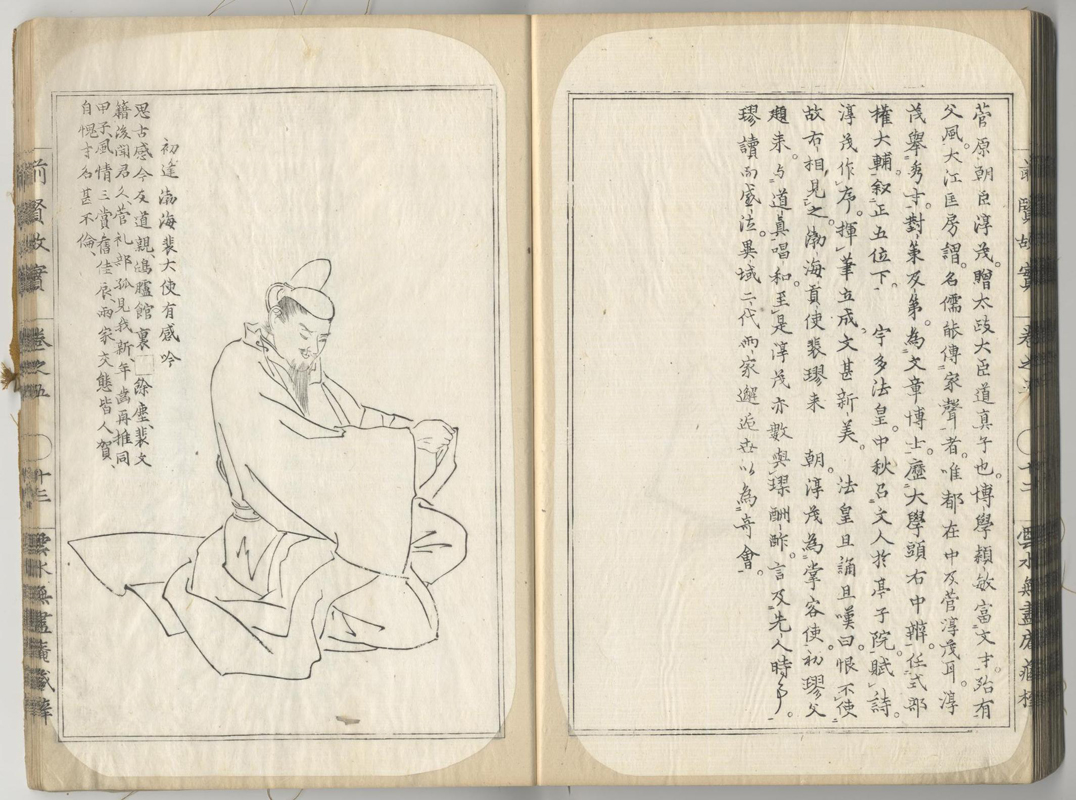 菅原朝臣淳茂。贈太政大臣道真子也。博學穎敏富文才。殆有
父風。大江匡房謂。名儒能傳家聲者。唯都在中及菅淳茂耳。淳
茂舉秀才。對策及第。為文章博士。歷大學頭右中辨。任式部
權大輔。叙正五位下。宇多法皇。中秋召文人於亭子院。賦詩。
淳茂作序。揮筆立成。文甚新美。法皇且誦且嘆曰。恨不使
故右相見之。渤海貢使裴璆來朝。淳茂為掌客使。初璆父
頲来。与道真唱和。至是淳茂亦數與璆酬酢。言及先人時事。
璆讀而感泣。異域二代兩家邂逅。世以為奇會。
初逢渤海裴大使有感吟
思古感今友道親、鴻臚館裏□餘塵、裴文
籍後聞君久、菅礼部孤見我新、年齒再推同
甲子、風情三賞舊佳辰、兩家交態皆人賀、
自愧才名甚不倫、
前賢故實 卷之五 十二 雲水無盡庵藏梓
前賢故實 卷之五 十三 雲水無盡庵藏梓